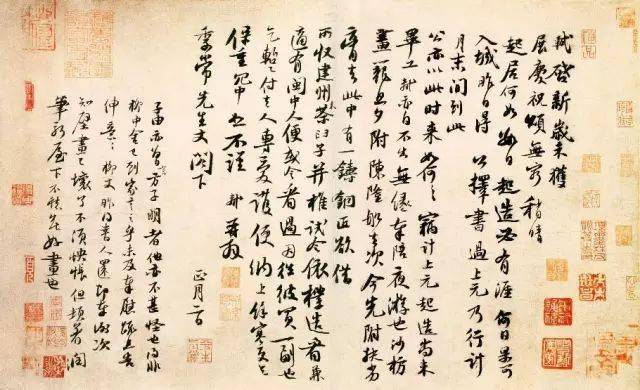 軾啟新歲未獲
展慶祝頌無窮稍晴
起居何如數日起造必有涯何日果可
入城昨日得公擇書過上元乃行計
月末間到此
公亦以此時來如何竊計上元起造尚未
畢工軾亦自不出無緣奉陪夜游也沙枋
畫籠旦夕附陳隆船去次今先附扶劣
膏去此中有一鑄銅匠欲借
所收建州木茶臼子并椎試令依樣造看兼
適有閩中人便或令看過因往彼買一副也
乞暫付去人專愛護便納上餘寒更乞
保重冗中恕不謹軾再拜
季常先生丈閣下
正月二日
子由亦曾言方子明者他亦不甚怪也得非
柳中舍已到家言之乎未及奉慰疏且告
伸意伸意柳丈昨得書人還即奉謝次
知壁畫已壞了不須怏悵但頓著潤
筆新屋下不愁無好畫也